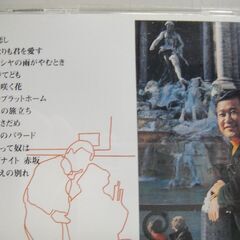 恋し
よりも君を愛す
シヤの雨がやむとき
てども
咲く花
プラットホーム
の旅立ち
さだめ
のバラード
って奴は
ナイト 赤坂
えの別れ